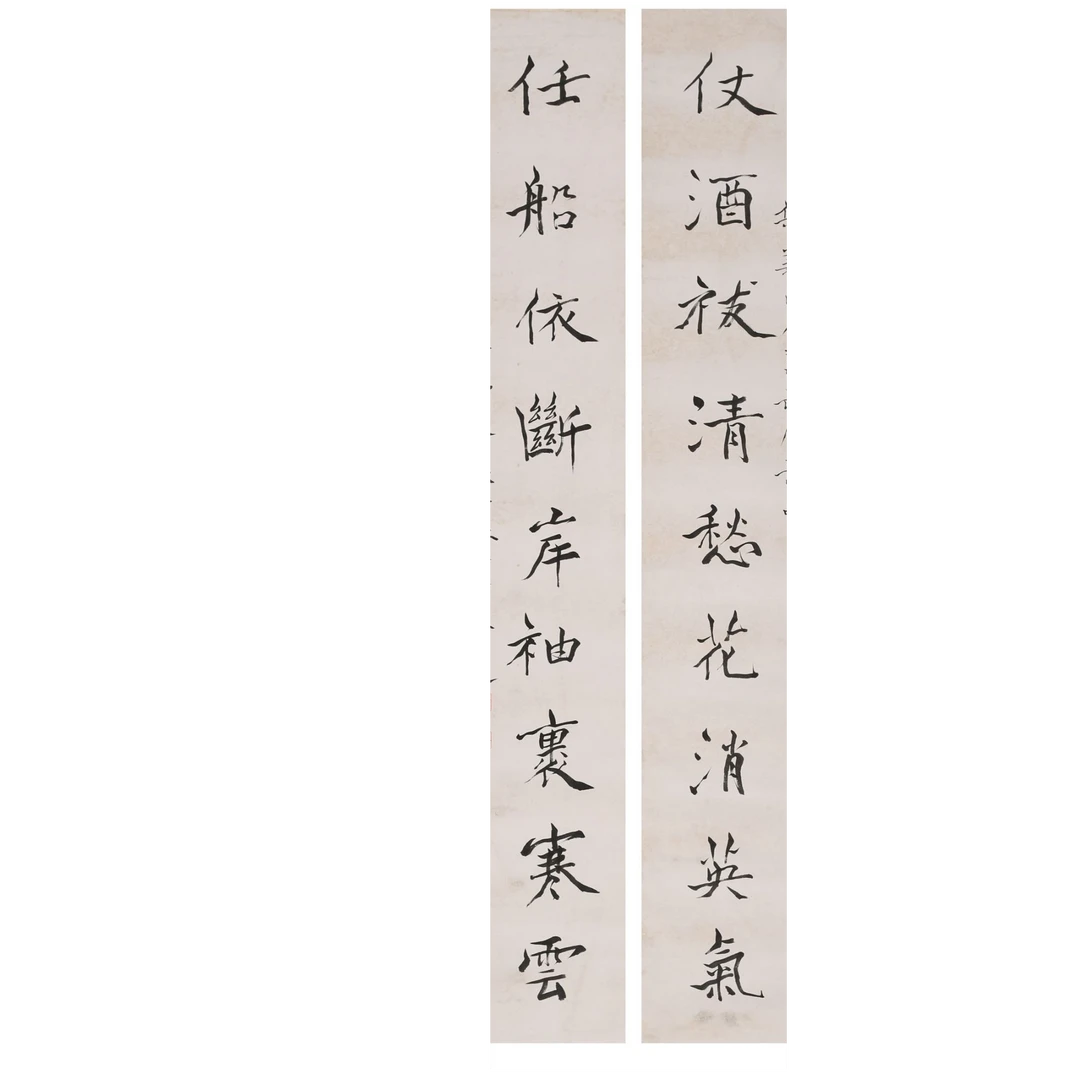 仗酒祓清愁花消英氣
任船依斷岸袖裹寒雲